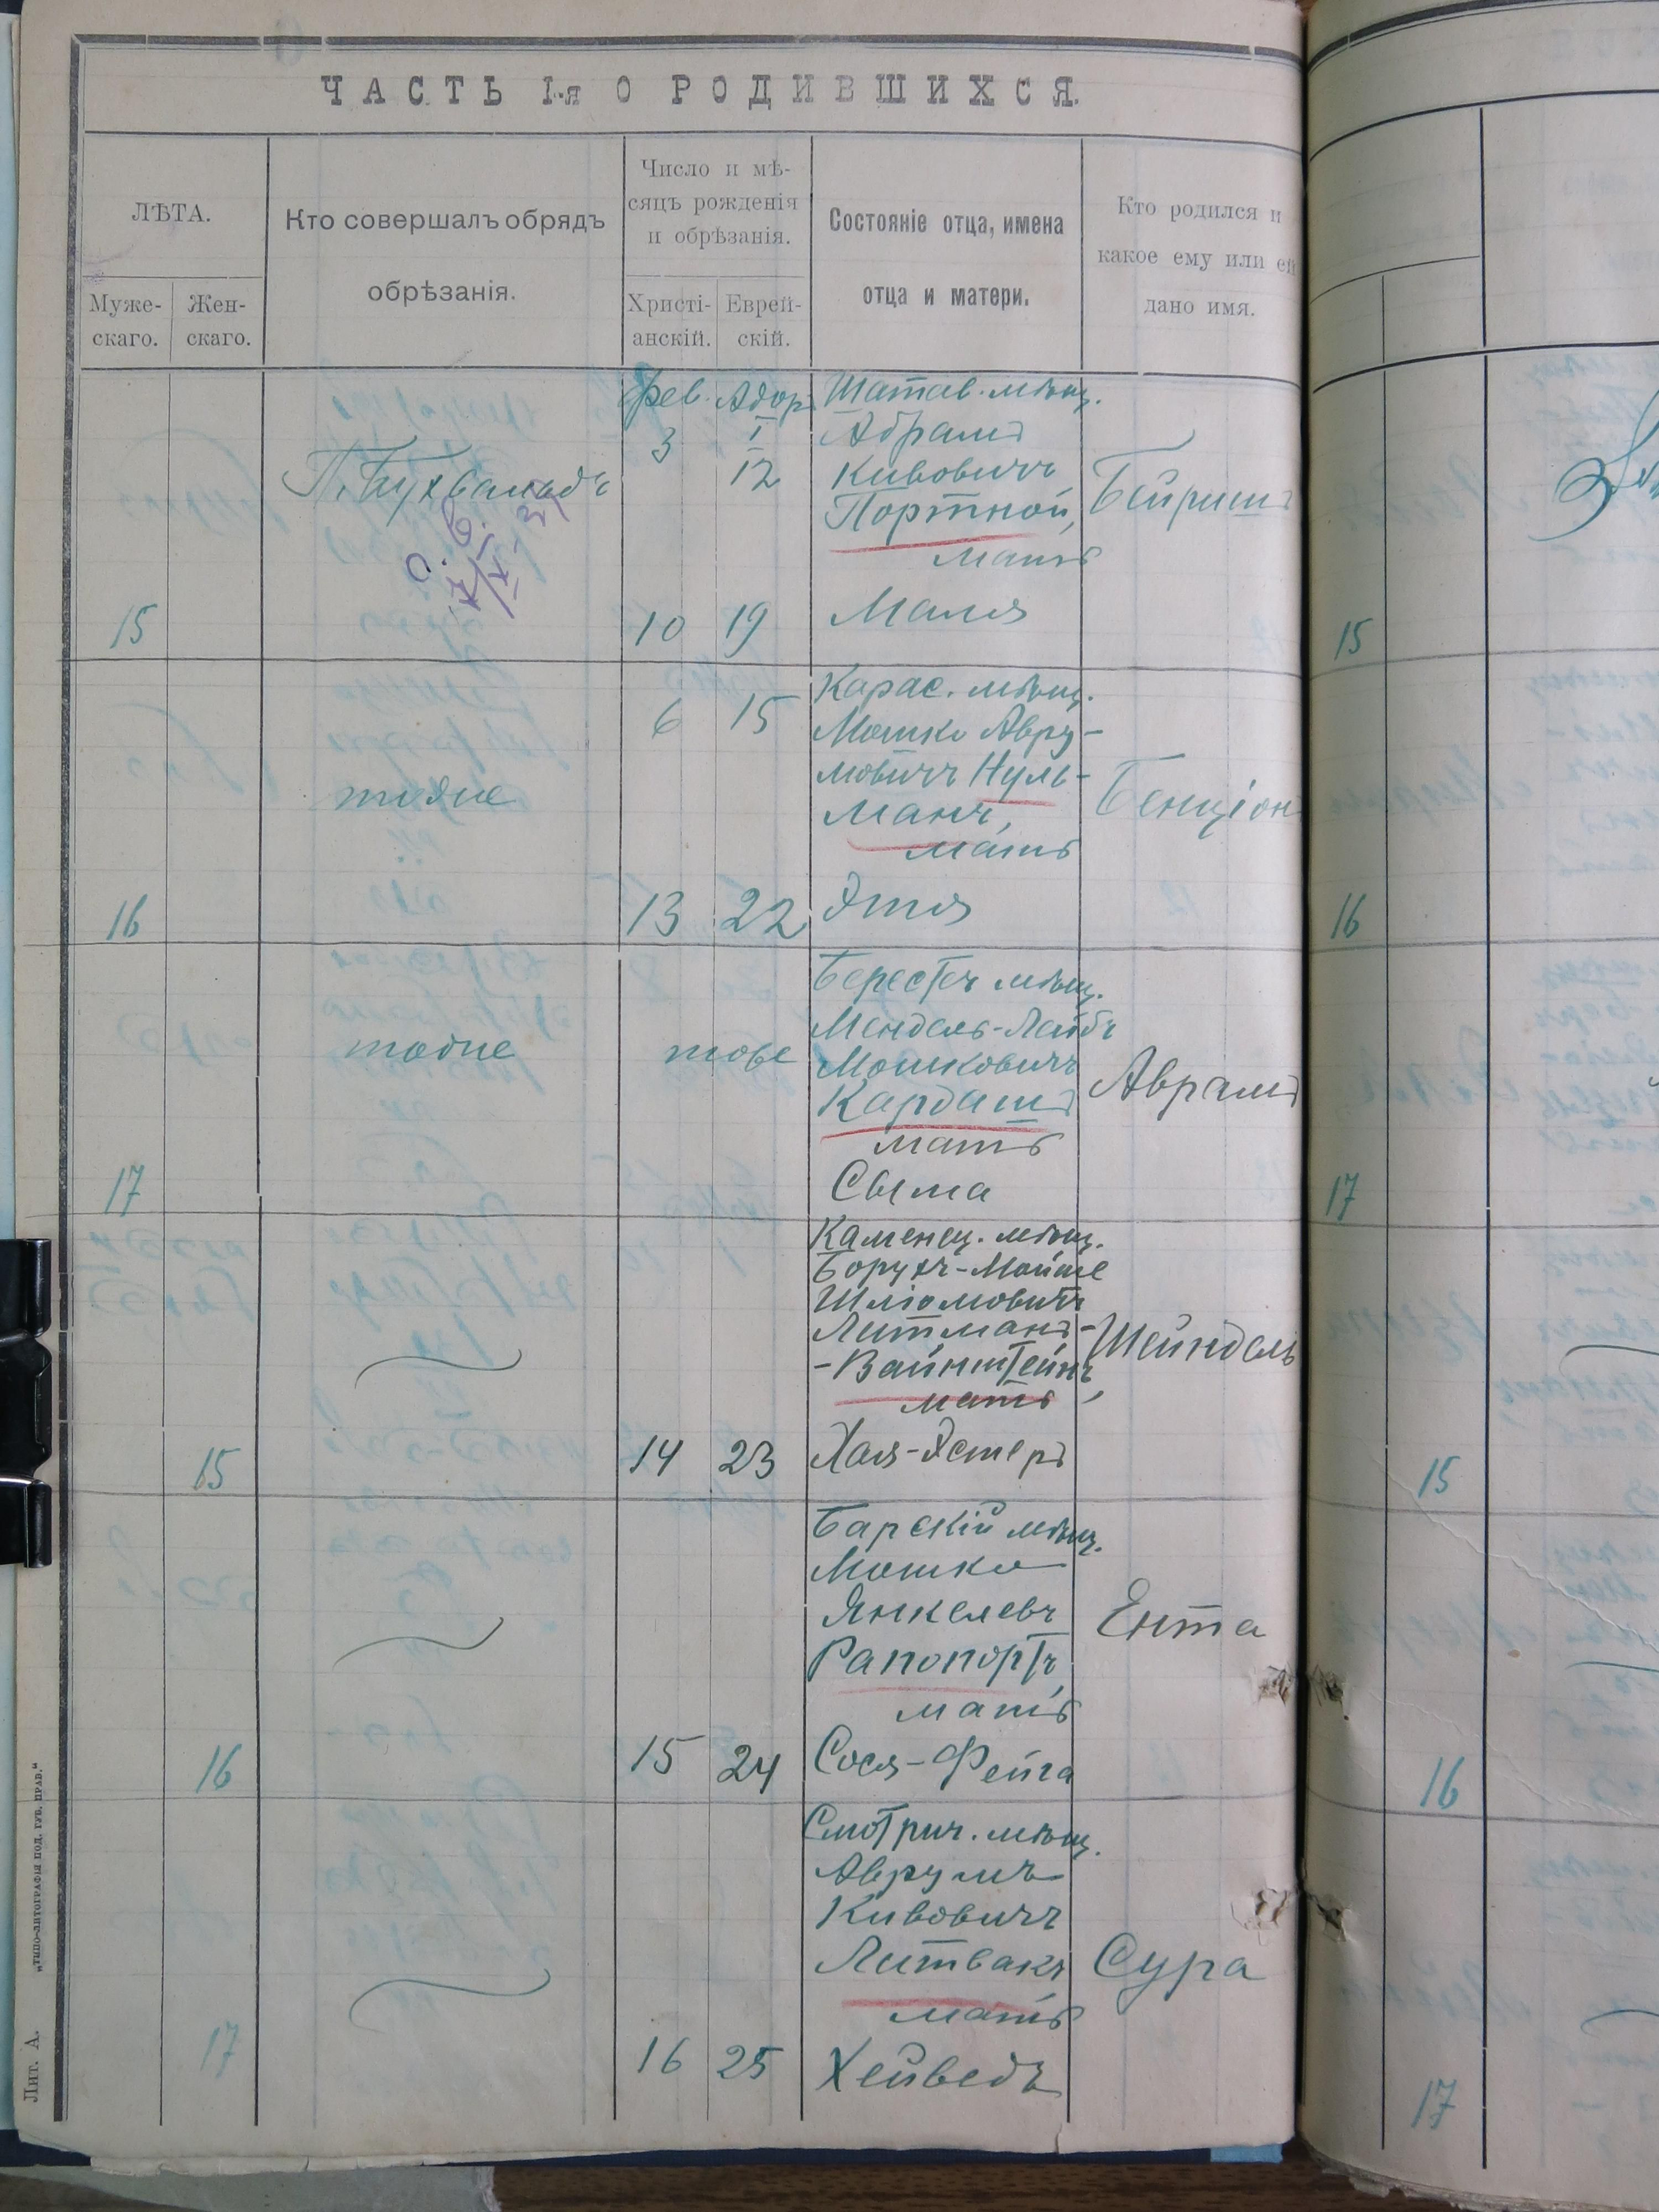 ЧАСТЬ I-я О РОДИВШИХСЯ.
ЛѢТА.
Муже-
скаго.
Жен-
скаго.
Кто совершалъ обрядъ
обрѣзанія.
Число и мѣ-
сяцъ рожденія
и обрѣзанія.
Христі-
анскій.
Еврей-
скій.
Состояніе отца, имена
отца и матери.
Кто родился и
какое ему или ей
дано имя.
Фев. Адар Шатав. мѣщ.
3 I Абрамъ
12 Кивовичъ
П. Бухвальдъ Портной, Бейришъ
мать
15 10 19 Маля 15
Карас. мѣщ.
6 15 Мошко Авру-
мовичъ Нуль-
тоже манъ, Бенціон
мать
16 13 22 Этя 16
Берестеч мѣщ.
Мендель-Лейбъ
тоже тоже Мошковичъ
Кардашъ Аврамъ
мать
17 Сыма 17
Каменец. мѣщ.
Борухъ-Мойше
Шліомовичъ
Литманъ- Шейндель
-Вайнштейнъ,
мать
15 14 23 Хая-Эстеръ 15
Барскій мѣщ.
Мошко
Янкелевъ Ента
Рапопортъ,
мать
16 15 24 Сося-Фейга 16
Смотрич. мѣщ.
Аврумъ
Кивовичъ
Литвакъ Сура
мать
17 16 25 Хейведъ 17
Лит. А. „ТИПО-ЛИТОГРАФІЯ ПОД. ГУБ. ПРАВ."